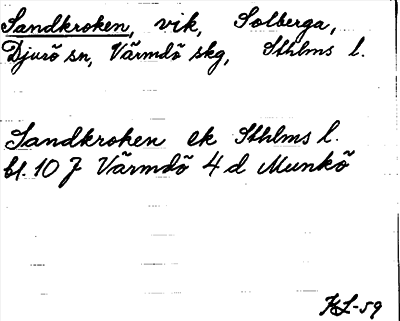 Sandkroken, vik, Solberga,
Djurö sn, Värmdö skg, Sthlms l.
Sandkroken ek Sthlms l.
bl. 10 J Värmdö 4 d Munkö
KL-59